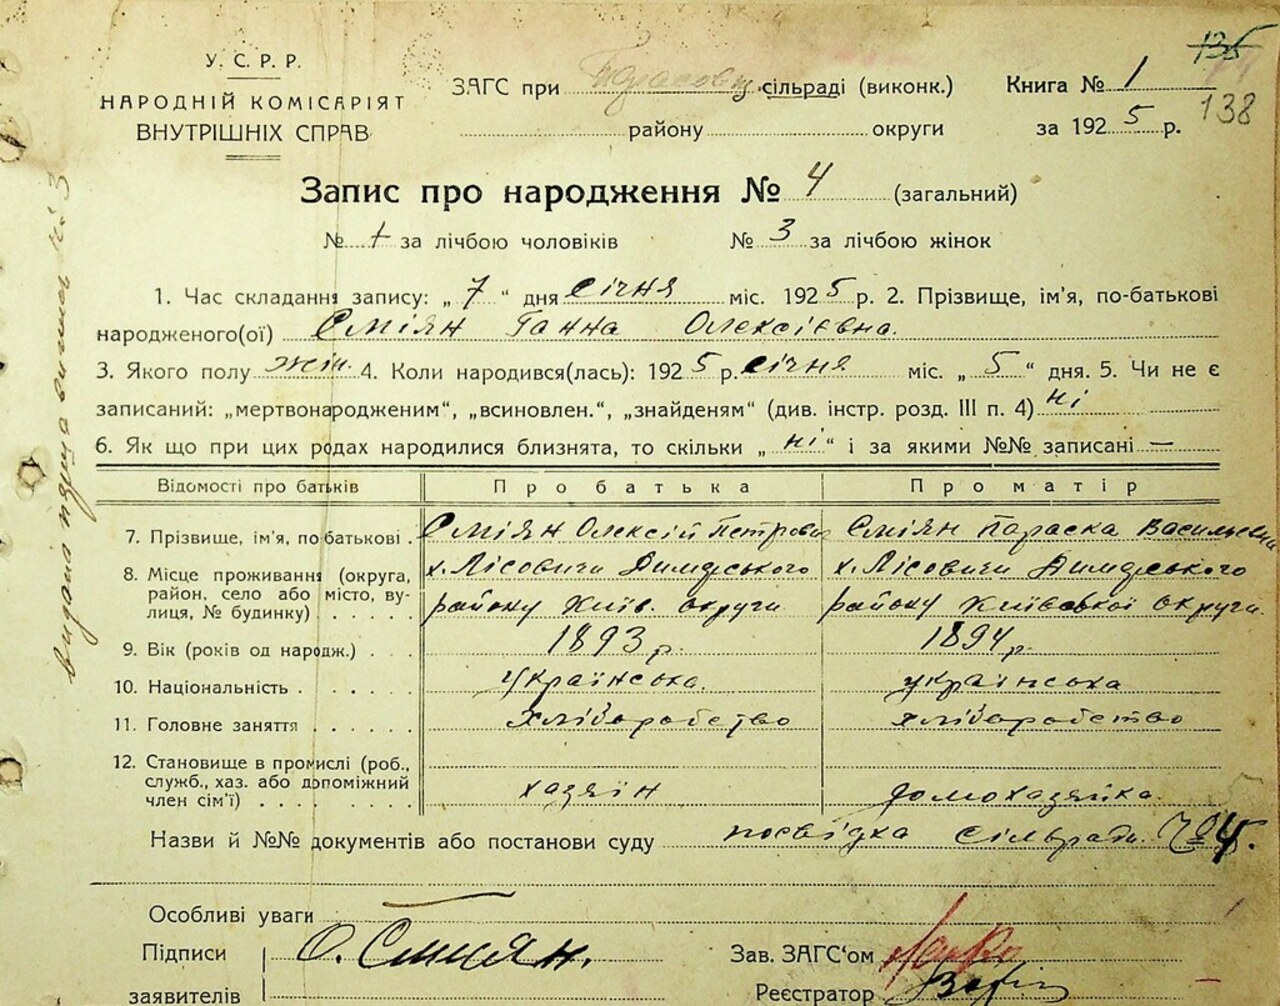 135
138
У. С. Р. Р.
НАРОДНІЙ КОМІСАРІЯТ
ВНУТРІШНІХ СПРАВ
ЗАГС при сільраді (виконк.)
району округи
Книга № 1
за 1925 р.
Запис про народження № 4 (загальний)
№ + за лічбою чоловіків № 3 за лічбою жінок
1. Час складання запису: „ 7 “ дня січня міс. 1925 р. 2. Прізвище, ім’я, по-батькові
народженого(ої) Сміян Ганна Олексієвна.
3. Якого полу жін. 4. Коли народився(лась): 1925 р. січня міс. „ 5 “ дня. 5. Чи не є
записаний: „мертвонародженим“, „всиновлен.“, „знайденям“ (див. інстр. розд. III п. 4) ні
6. Як що при цих родах народилися близнята, то скільки „ ні “ і за якими №№ записані —
Відомості про батьків Про батька Про матір
7. Прізвище, ім’я, по батькові . Сміян Олексій Петрович Сміян Параска Васильевна
8. Місце проживання (округа, х. Лісовичи Димерського х. Лісовичи Димерського
район, село або місто, ву-
лиця, № будинку) . . . . . району Київ. округи району Київської округи.
9. Вік (років од народж.) . . . 1893 р. 1894 р.
10. Національність . . . . . . українська. українська
11. Головне заняття . . . . . . хліборобство хліборобство
12. Становище в промислі (роб.,
служб., хаз. або допоміжний
член сім’ї) . . . . . . . . хазяін домохазяйка.
Назви й №№ документів або постанови суду посвідка сільради. № 4.
Особливі уваги
Підписи О. Смиян. Зав. ЗАГС‘ом
заявителів Реєстратор